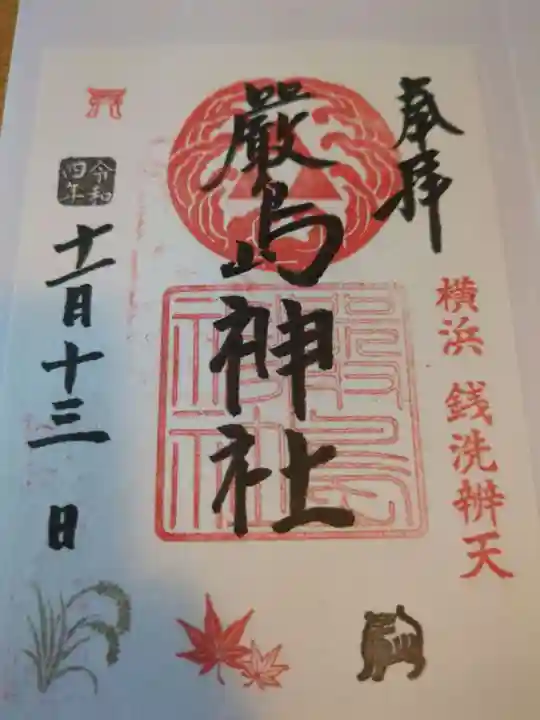 奉拝
横浜 銭洗辨天
厳島神社
嚴島神社
令和四年
十一月十三日